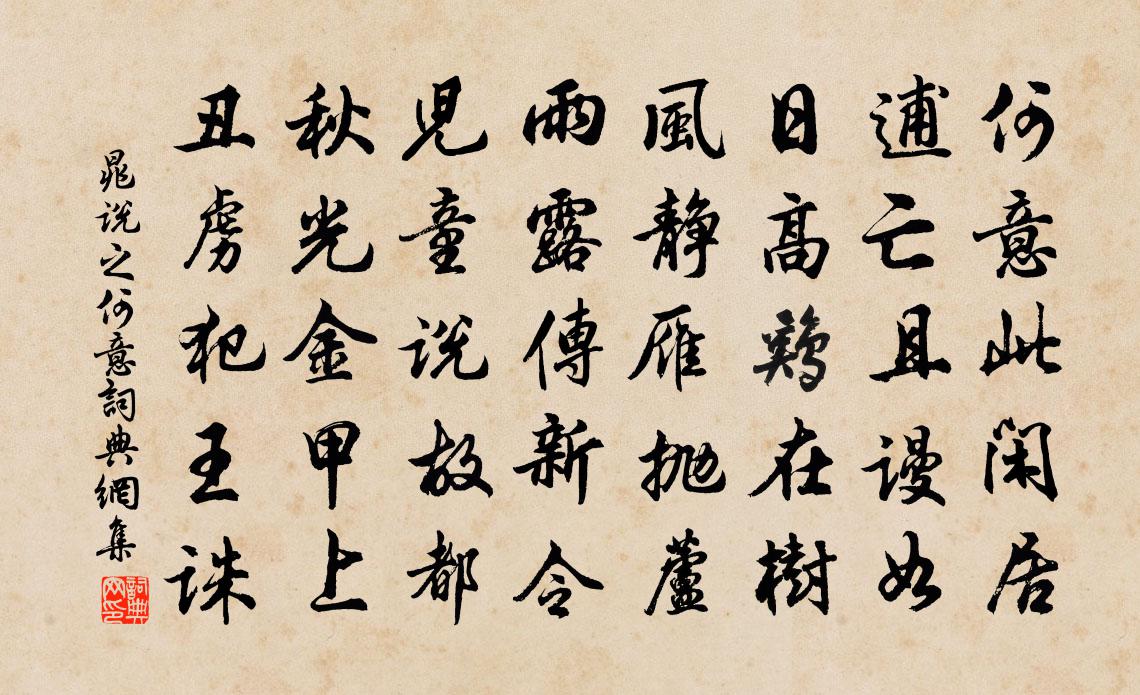 何意此閑居
逋亡且謾如
日高鷄在樹
風靜雁拋蘆
雨露傳新令
兒童説故都
秋光金甲上
丑虜犯王誅
晁説之何意詞典網集
詞典網印